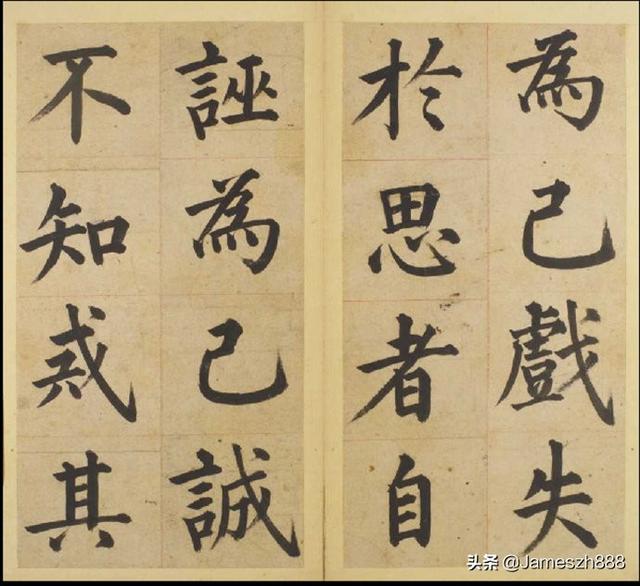 為己戲失
於思者自
誣為己誠
不知戒其
头条 @Jameszh888